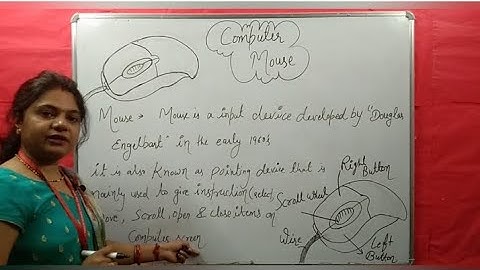 Computer
Mouse
Mouse → Mouse is a input device developed by "Douglas
Engelbart" in the early 1960's
it is also known as pointing device that is
mainly used to give instruction (select,
move, Scroll, open & close items on
Computer screen
Right
Button
Scroll wheel
Wire
Left
Button